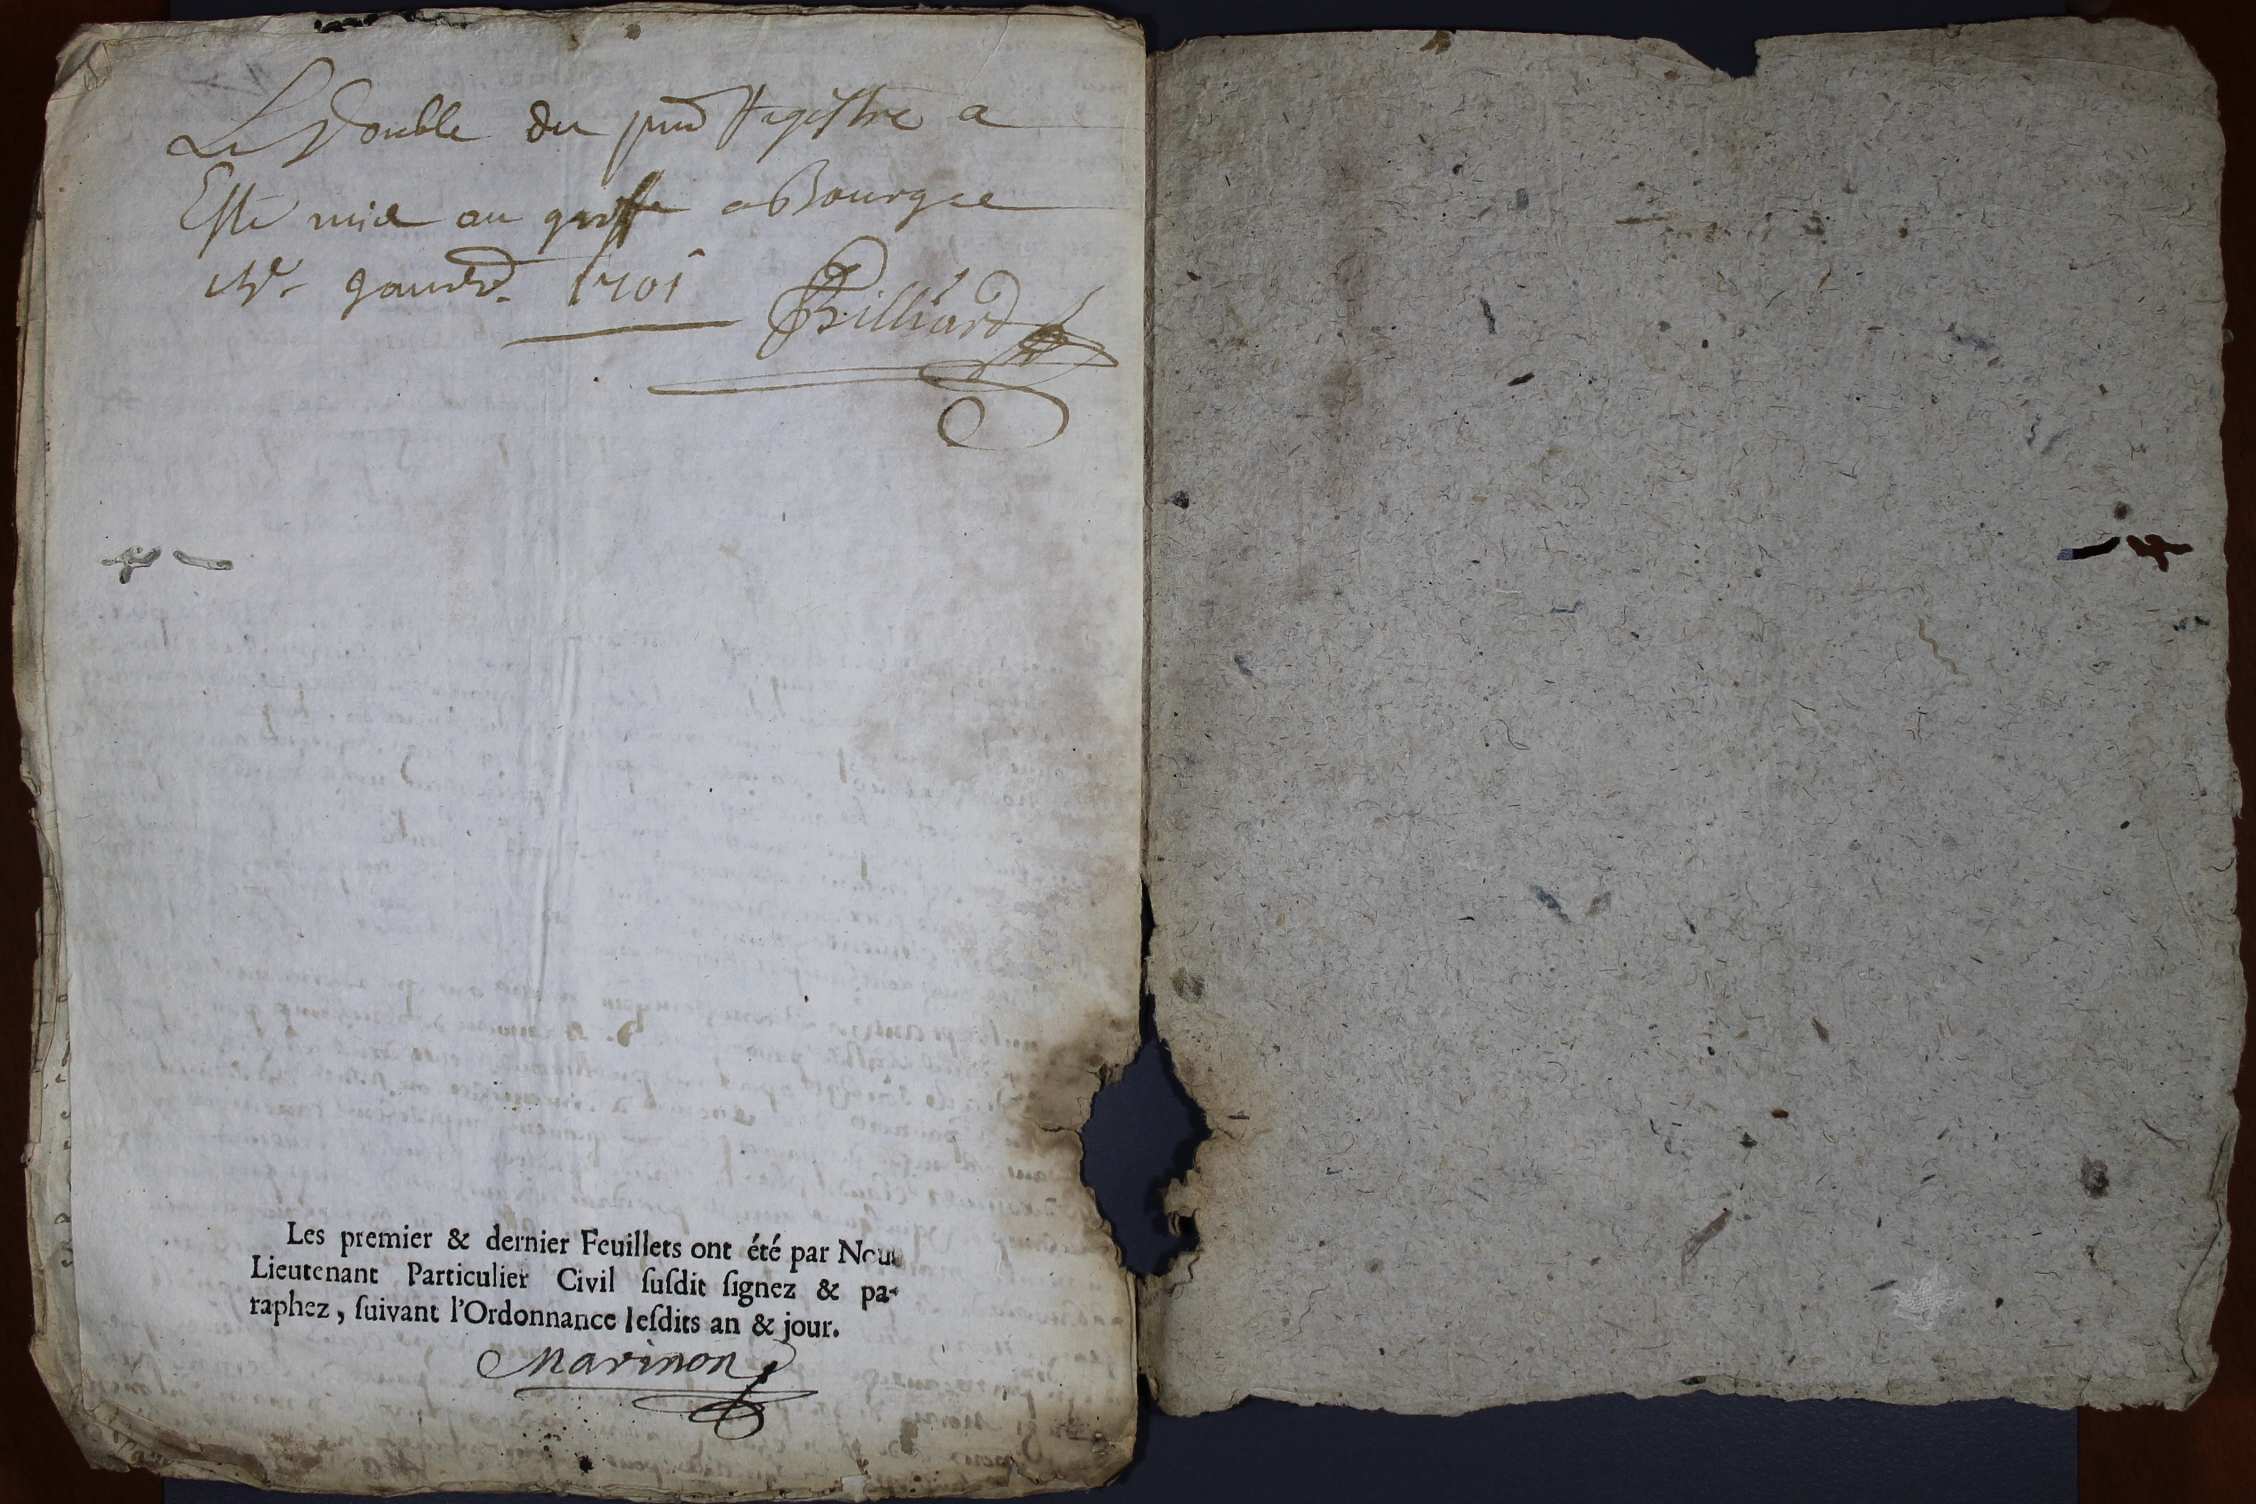 Le Double du pnt Registre a
Esté mis au greffe a Bourges
1701
Billiard
Les premier & dernier Feuillets ont été par Nous
Lieutenant Particulier Civil ſuſdit ſignez & pa-
raphez, ſuivant l'Ordonnance leſdits an & jour.
Marinon